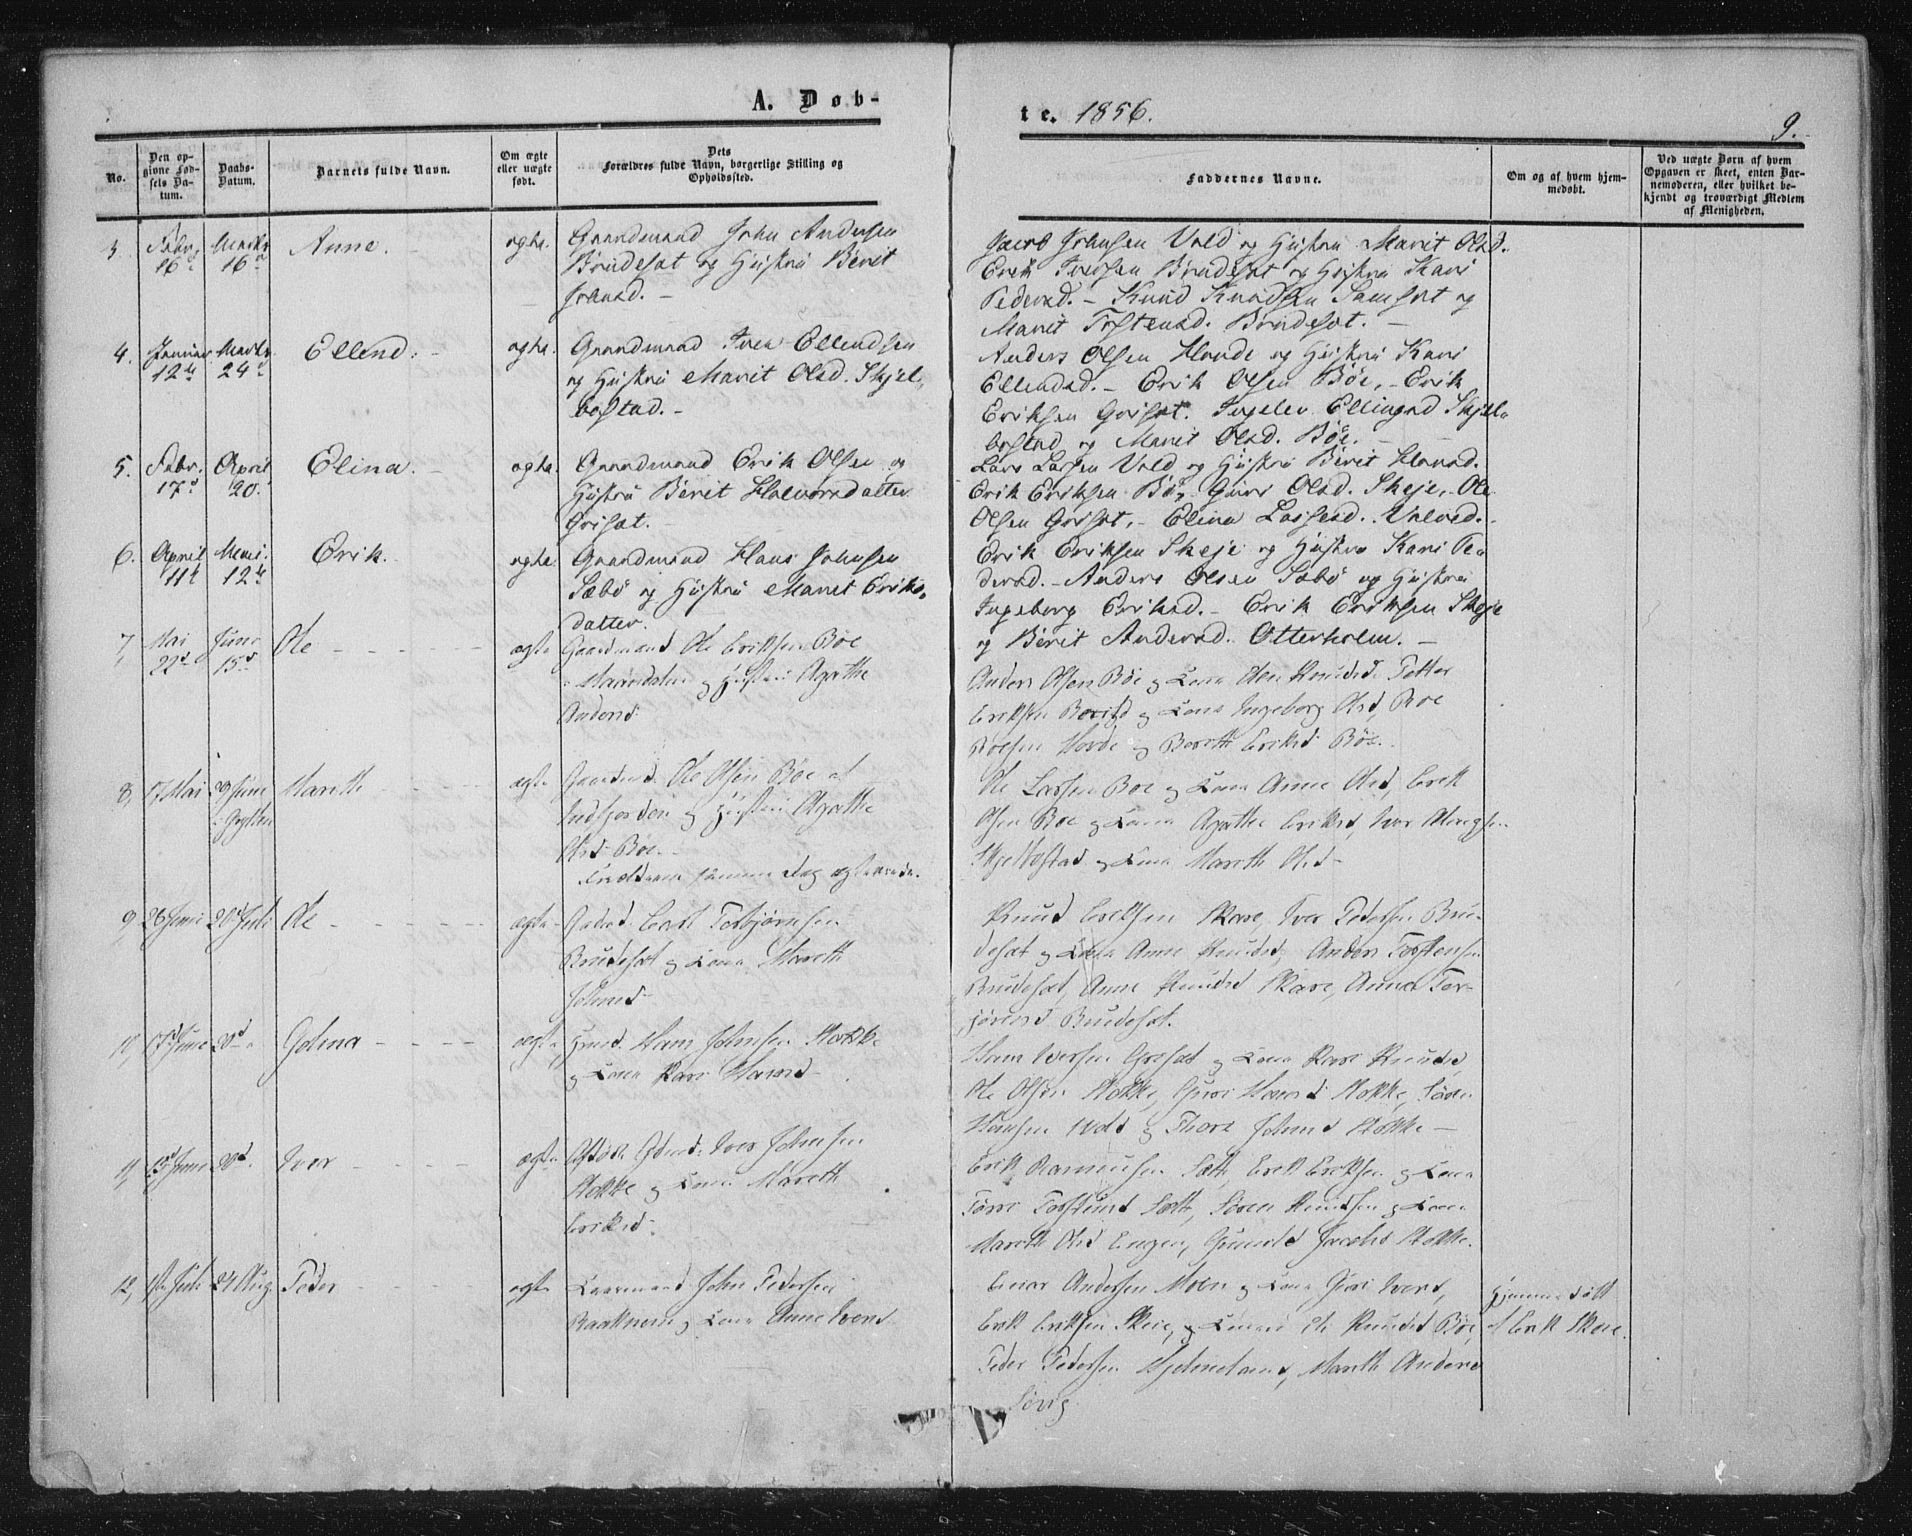 A. Døb-
te. 1856.
9.
No.
Den op-
givne Fød-
sels Da-
tum.
Daabs-
Datum.
Barnets fulde Navn.
Om ægte
eller uægte
født.
Dets
Forældres fulde Navn, borgerlige Stilling og
Opholdssted.
Faddernes Navne.
Om og af hvem hjem-
medøbt.
Ved uægte Børn af hvem
Opgaven er skeet, enten Bar-
nemoderen, eller hvilket be-
kjendt og troværdigt Medlem
af Menigheden.
3. Febr. Marts Anne. ægte. Gaardmand John Andersen
16de 16de Brudesæt og Hustru Berit
Johnsd.
Jacob Johnsen Vold og Hustru Marit Olsd.
Erik Iversen Brudesæt og Hustru Kari
Pedersd. - Knud Knudsen Samset og
Marit Tostensd. Brudesæt. -
4. Januar Marts Ellend. ægte. Gaardmand Iver Ellendsen
12te 24de og Hustru Marit Olsd. Skjel-
bostad. -
Anders Olsen Hovde og Hustru Kari
Ellendsd. - Erik Olsen Bøe, - Erik
Eriksen Griset. Ingelev Ellingsd Skjel-
bostad og Marit Olsd. Bøe. -
5. Febr. April Elina. ægte. Gaardmand Erik Olsen og
17de 20. Hustru Berit Halvorsdatter
Grisæt. -
Lars Larsen Vold og Hustru Berit Hansd.
Erik Eriksen Bø, Guri Olsd. Skeje, Ole
Olsen Griset, - Elina Lassesd. Volvod.
6. April Mai. Erik. ægte. Gaardmand Hans Johnsen
11te 12te Sæbø og Hustru Marit Eriks-
datter.
Erik Eriksen Skeje og Hustru Kari Pe-
dersd. - Anders Olsen Sæbø og Hustru
Ingeborg Eriksd. - Erik Eriksen Skeje
og Berit Andersd. Otterholm. -
7, Mai Juni Ole ægte Gaardmand Ole Eriksen Bøe
22de 15de og Hustru Agathe
Andersd
Anders Olsen Bøe og Kona Knudsd Petter
Eriksen og Kona Ingeborg Olsd, Roe
Roesen Hovde og Bereth Eriksd Bøe.
8, 17 Mai 29 Juni Mareth ægte Gaardmd. Ole Olsen Bøe af
i Grytten Indfjorden og Hustru Agathe
Olsd Bøe.
samme Dag
Ole Larsen Boe og Kona Anne Olsd, Erik
Olsen Boe og Kona Agathe Eriksd, Iver
Skjelbostad og Kona Mareth Olsd
9, 28 Juni 20 Juli Ole ægte Torbjørnsen
Brudesæt og Kona Mareth
Johnsd
Knud Eriksen Skare, Iver Pedersen Bru-
desæt og Kona Anne Knudsd, Anders Torstensen
Brudesæt, Anne Knudsd Skare, Anna Tor-
jørnsd Brudesæt.
10, 17d Juni 20d Golina ægte Hans Johnsen Stokke
og Kona Kari Hansd
Hans Iversen Griset og Kona Kari Knudsd,
Ole Olsen Stokke, Guri Hansd Stokke, Søren
Hansen Vold og Thore Johnsd Stokke -
11, 13d Juni 20d. Iver ægte Iver Johnsen
Stokke og Kona Mareth
Eriksd.
Erik Rasmusen Sæth, Erik Eriksen og Kona
Sæth, Søren Knudsen og Kona
Mareth Olsd Engen, Jacobsd Stokke.
12, 1ste Juli 24 Aug Peder ægte John Pedersen
og Kona Anne Iversd
Einar Andersen Moen og Kona Guri Iversd,
Erik Eriksen Skeie, og Knudsd Bøe,
Peder Pedersen Hjelmeland, Mareth Andersd
Sørig
Hjemmedøbt
af Erik Skeie.